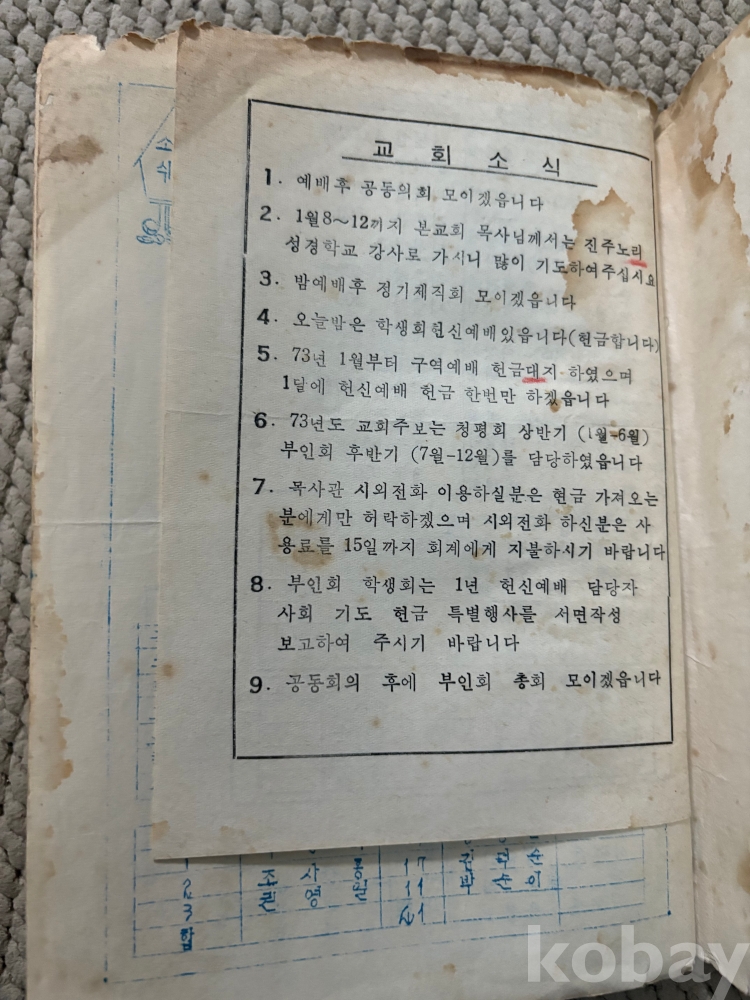 교 회 소 식
1. 예배후 공동의회 모이겠읍니다
2. 1월8~12까지 본교회 목사님께서는 진주노리
성경학교 강사로 가시니 많이 기도하여주십시요
3. 밤예배후 정기제직회 모이겠읍니다
4. 오늘밤은 학생회헌신예배있읍니다(헌금합니다)
5. 73년 1월부터 구역예배 헌금대지 하였으며
1달에 헌신예배 헌금 한번만 하겠읍니다
6. 73년도 교회주보는 청평회 상반기 (1월-6월)
부인회 후반기 (7월-12월)를 담당하였읍니다
7. 목사관 시외전화 이용하실분은 현금 가져오는
분에게만 허락하겠으며 시외전화 하신분은 사
용료를 15일까지 회계에게 지불하시기 바랍니다
8. 부인회 학생회는 1년 헌신예배 담당자
사회 기도 헌금 특별행사를 서면작성
보고하여 주시기 바랍니다
9. 공동회의 후에 부인회 총회 모이겠읍니다
소식
17
11
2
3
합
kobay